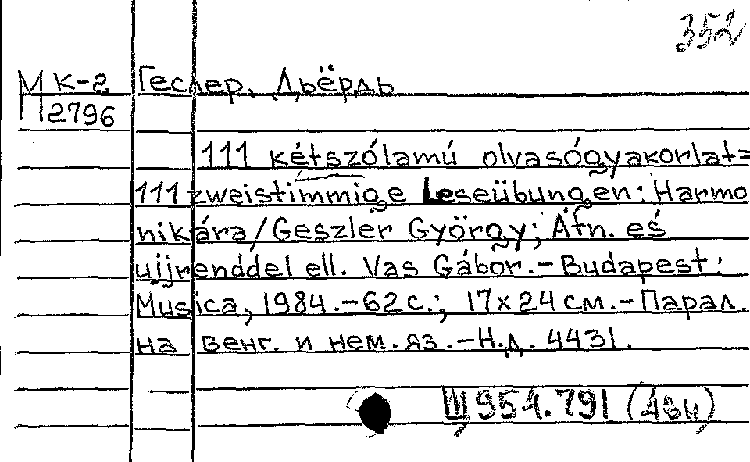 352
М К-2 Геслер, Дьёрдь
12796
111 kétszólamú olvasógyakorlat=
111 zweistimmige Leseübungen: Harmo
nikára/Geszler György; Átn. és
ujjrenddel ell. Vas Gábor.-Budapest:
Musica, 1984.-62 с.; 17x24 см.-Парал.
на венг. и нем. яз.-Н.д. 4431.
Щ 954.791